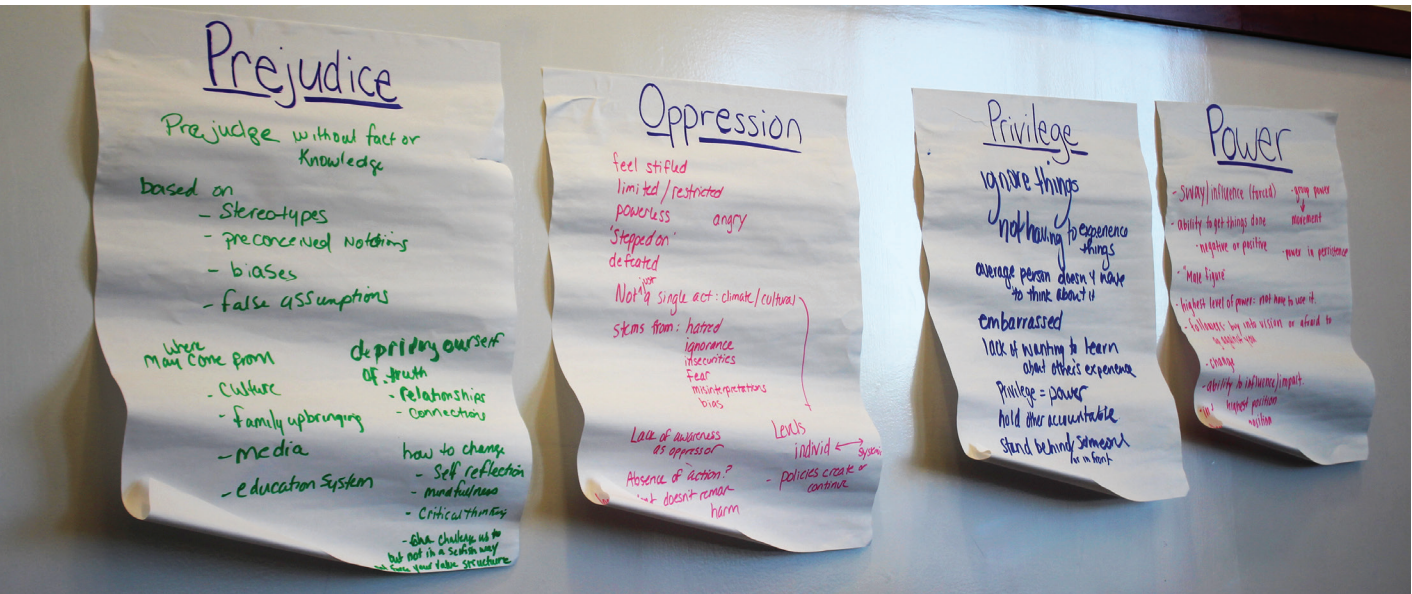 Prejudice
Prejudge without fact or
Knowledge
based on
- Stereotypes
- preconceived Notions
- biases
- false assumptions
where
May come from
- Culture
- family upbringing
- media
- education System
depriving ourself
of truth
- relationships
- connections
how to change
- Self reflection
- mindfullness
- Critical thinking
challenge us to
but not in a selfish way
your value structure
Oppression
feel stifled
limited/restricted
powerless angry
'Stepped on'
defeated
just
Not a single act: climate/cultural
stems from: hatred
ignorance
insecurities
fear
misinterpretations
bias
Lack of awareness
as oppressor
Absence of action?
doesn't
harm
Levels
individ ↔ System
- policies create or
continue
Privilege
ignore things
not having to experience
things
average person doesn't have
to think about it
embarrassed
lack of wanting to learn
about other's experience
Privilege = power
hold other accountable
stand behind/someone
or in front
Power
- Sway/influence (forced) - group power
- ability to get things done movement
- negative or positive - power in persistence
- "Male figure"
- highest level of power: not have to use it.
- followers- buy into vision or afraid to
go against you
- change
- ability to influence/impact.
highest position
position